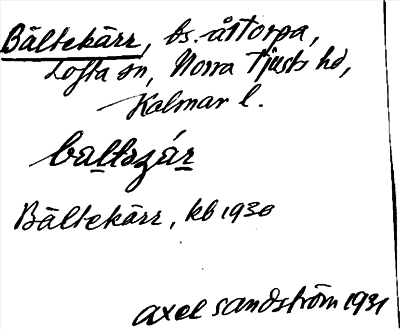 Bältekärr, bs. åttorpa,
Lofta sn, Norra Tjusts hd,
Kalmar l.
baltszár
Bältekärr, kb 1930
Axel Sandström 1931